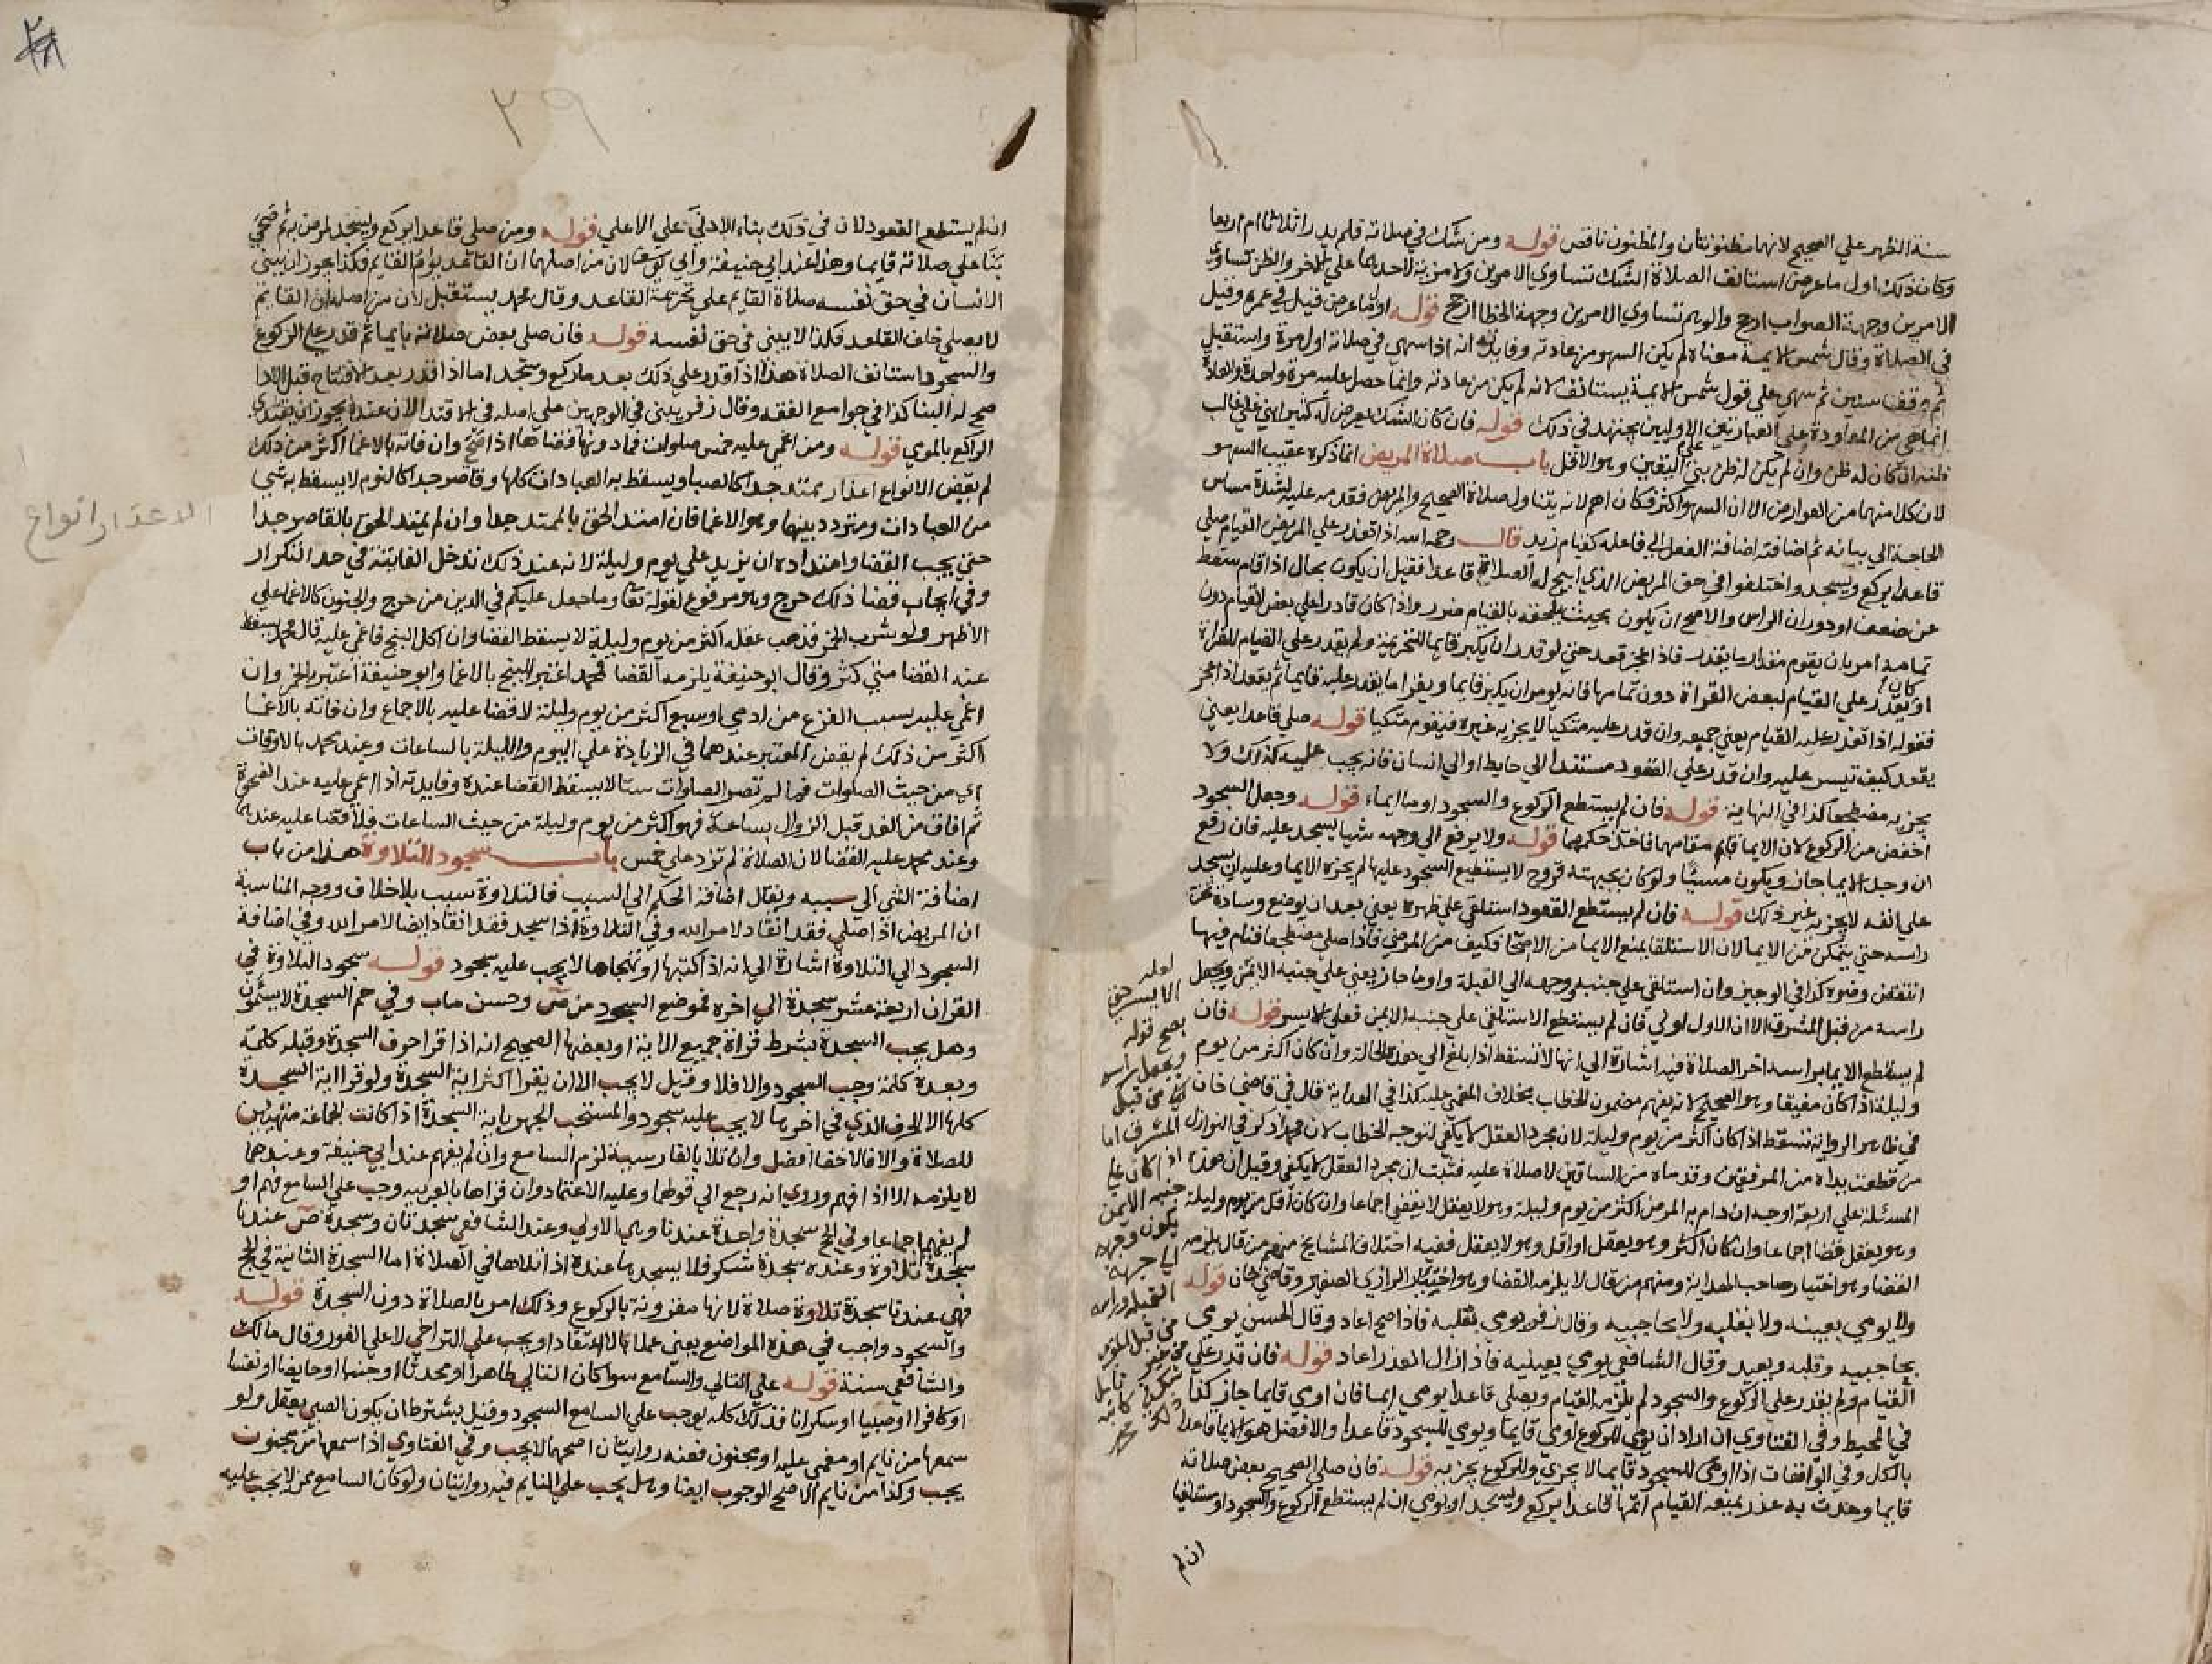 سنة الظهر علي الصحيح لانهما مظنونتان والمظنون ناقص قوله ومن شك في صلاته فلم يدر اثلاثا ام اربعا
وكان ذلك اول ما عرض استانف الصلاة الشك تساوي الامرين ولا مزية لاحدهما علي الاخر والظن تساوي
الامرين وجهة الصواب ارجح والوهم تساوي الامرين وجهة الخطا ارجح قوله اول ما عرض قيل في عمره وقيل
في الصلاة وقال شمس الايمة معناه لم يكن السهو من عادته وفايدته انه اذا سهي في صلاته اول مرة واستقبل
ثم وقف سنين ثم سهي علي قول شمس الايمة يستانف لانه لم يكن من عادته وانما حصل عليه مرة واحدة والعادة
انما هي من المعاودة وعلي العبارتين الاوليين يجتهد في ذلك قوله فان كان الشك يعرض له كثيرا بني علي غالب
ظنه ان كان له ظن وان لم يكن له ظن بني علي اليقين وهو الاقل باب صلاة المريض انما ذكره عقيب السهو
لان كلا منهما من العوارض الا ان السهو اكثر فكان اهم لانه يتناول صلاة الصحيح والمريض فقدمه عليه لشدة مساس
الحاجة الي بيانه ثم اضافته اضافة الفعل الي فاعله كقيام زيد قال رحمه الله اذا تعذر علي المريض القيام صلي
قاعدا يركع ويسجد واختلفوا في حق المريض الذي ابيح له الصلاة قاعدا فقيل ان يكون بحال اذا قام سقط
عن ضعف او دوران الراس والاصح ان يكون بحيث يلحقه بالقيام ضرر واذا كان قادرا علي بعض القيام دون
تمامه امر بان يقوم مقدار ما يقدر فاذا عجز قعد حتي لو قدر ان يكبر قايما للتحريمة ولم يقدر علي القيام للقراة
او كان يقدر علي القيام لبعض القراة دون تمامها فانه يومر ان يكبر قايما ويقرا ما يقدر عليه قايما ثم يقعد اذا عجز
فقوله اذا تعذر عليه القيام يعني جميعه وان قدر عليه متكيا لا يجزيه غيره فيقوم متكيا قوله صلي قاعدا يعني
يقعد كيف تيسر عليه وان قدر علي القعود مستندا الي حايط او الي انسان فانه يجب عليه كذلك ولا
يجزيه مضطجعا كذا في النهاية قوله فان لم يستطع الركوع والسجود اوما ايماء قوله وجعل السجود
اخفض من الركوع لان الايما قايم مقامهما فاخذ حكمهما قوله ولا يرفع الي وجهه شيا يسجد عليه فان رفع
ان وجد الايما جاز ويكون مسيا ولو كان بجبهته قروح لا يستطيع السجود عليها لم يجزه الايما وعليه ان يسجد
علي انفه لا يجزيه غير ذلك قوله فان لم يستطع القعود استلقي علي ظهره يعني بعد ان يوضع وسادة تحت
راسه حتي يتمكن من الايما لان الاستلقا يمنع الايما من الاصحا فكيف من المرضي فاذا صلي مضطجعا فنام فيها
انتقض وضوه كذا في الوجيز وان استلقي علي جنبه ووجهه الي القبلة واوما جاز يعني علي جنبه الايمن ويجعل
راسه من قبل المشرق الا ان الاول اولي فان لم يستطع الاستلقي علي جنبه الايمن فعلي الايسر قوله فان
لم يستطع الايما براسه اخر الصلاة فيه اشارة الي انها لا تسقط اذا بلغ الي هذه الحالة وان كان اكثر من يوم
وليلة اذا كان مفيقا وهو الصحيح لانه يفهم مضمون الخطاب بخلاف المغمي عليه كذا في الهداية قال في قاضي خان
في ظاهر الرواية تسقط اذا كان اكثر من يوم وليلة لان مجرد العقل لا يكفي لتوجه الخطاب لان محمدا ذكر في النوادر
من قطعت يداه من المرفقين وقدماه من الساقين لا صلاة عليه فثبت ان مجرد العقل لا يكفي وقيل ان هذه
المسئلة علي اربعة اوجه ان دام به المرض اكثر من يوم وليلة وهو لا يعقل لا يقضي اجماعا وان كان اقل من يوم وليلة
وهو يعقل قضا اجماعا وان كان اكثر وهو يعقل او اقل وهو لا يعقل ففيه اختلاف المشايخ منهم من قال يلزمه
القضا وهو اختيار صاحب الهداية ومنهم من قال لا يلزمه القضا وهو اختيار الرازي الصغير وقاضي خان قوله
ولا يومي بعينه ولا بقلبه ولا بحاجبيه وقال زفر يومي بقلبه فاذا صح اعاد وقال الحسن يومي
بحاجبيه وقلبه ويعيد وقال الشافعي يومي بعينيه فاذا زال العذر اعاد قوله فان قدر علي
القيام ولم يقدر علي الركوع والسجود لم يلزمه القيام ويصلي قاعدا يومي ايما فان اومي قايما جاز كذا
في المحيط وفي الفتاوي ان اراد ان يومي للركوع اومي قايما ويومي للسجود قاعدا والافضل هو الايما قاعدا
بالكل وفي الواقعات اذا اومي للسجود قايما لا يجزي وللركوع يجزيه قوله فان صلي الصحيح بعض صلاته
قايما وحدث به عذر يمنعه القيام اتمها قاعدا يركع ويسجد او يومي ان لم يستطع الركوع والسجود او مستلقيا
ان لم
لعله
الايسر حتي
يصح قوله
ويجعل راسه
من قبل
المشرق اما
اذا كان علي
جنبه الايمن
يكون وجهه
الي جهة
القبله وراسه
من قبل
من غير
شك تامل
كاتبه
٣٩
ان لم يستطع القعود لان في ذلك بناء الادني علي الاعلي قوله ومن صلي قاعدا يركع ويسجد لمرض به ثم صح
بنا علي صلاته قايما وهذا عند ابي حنيفة وابي يوسف لان من اصلهما ان القاعد يؤم القايم فكذا يجوز ان يبني
الانسان في حق نفسه صلاة القايم علي تحريمة القاعد وقال محمد يستقبل لان من اصله ان القايم
لا يصلي خلف القاعد فكذا لا يبني في حق نفسه قوله فان صلي بعض صلاته بايما ثم قدر علي الركوع
والسجود استانف الصلاة هذا اذا قدر علي ذلك بعد ما ركع وسجد اما اذا قدر بعد الافتتاح قبل الادا
صح له البنا كذا في جوامع الفقه وقال زفر يبني في الوجهين علي اصله في الاقتدا لان عنده يجوز ان يقتدي
الراكع بالمومي قوله ومن اغمي عليه خمس صلوات فما دونها قضاها اذا صح وان فاته بالاغما اكثر من ذلك
لم يقض الانواع اعذار ممتد جدا كالصبا ويسقط به العبادات كلها وقاصر جدا كالنوم لا يسقط به شي
من العبادات ومتردد بينهما وهو الاغما فان امتد الحق بالممتد جدا وان لم يمتد الحق بالقاصر جدا
حتي يجب القضا وامتداده ان يزيد علي يوم وليلة لانه عند ذلك تدخل الفايتة في حد التكرار
وفي ايجاب قضا ذلك حرج وهو مرفوع لقوله تعا وما جعل عليكم في الدين من حرج والجنون كالاغما علي
الاظهر ولو شرب الخمر فذهب عقله اكثر من يوم وليلة لا يسقط القضا وان اكل البنج فاغمي عليه قال محمد يسقط
عنه القضا متي كثر وقال ابو حنيفة يلزمه القضا فمحمد اعتبر البنج بالاغما وابو حنيفة اعتبره بالخمر وان
اغمي عليه بسبب الفزع من ادمي او سبع اكثر من يوم وليلة لا قضا عليه بالاجماع وان فاته بالاغما
اكثر من ذلك لم يقض المعتبر عندهما في الزيادة علي اليوم والليلة بالساعات وعند محمد بالاوقات
اي من حيث الصلوات فما لم تصر الصلوات ستا لا يسقط القضا عنده وفايدته اذا اغمي عليه عند الضحوة
ثم افاق من الغد قبل الزوال بساعة فهو اكثر من يوم وليلة من حيث الساعات فلا قضا عليه عندهما
وعند محمد عليه القضا لان الصلاة لم تزد علي خمس باب سجود التلاوة هذا من باب
اضافة الشي الي سببه ويقال اضافة الحكم الي السبب فالتلاوة سبب بلا خلاف ووجه المناسبة
ان المريض اذا صلي فقد انقاد لامر الله وفي التلاوة اذا سجد فقد انقاد ايضا لامر الله وفي اضافة
السجود الي التلاوة اشارة الي انه اذا كتبها او تهجاها لا يجب عليه سجود قوله سجود التلاوة في
القران اربعة عشر سجدة الي اخره فموضع السجود من ص وحسن ماب وفي حم السجدة لا يسئمون
وهل يجب السجدة بشرط قراة جميع الاية او بعضها الصحيح انه اذا قرا حرف السجدة وقبله كلمة
وبعده كلمة وجب السجود والا فلا وقيل لا يجب الا ان يقرا اكثر اية السجدة ولو قرا اية السجدة
كلها الا الحرف الذي في اخرها لا يجب عليه سجود والمستحب الجهر باية السجدة اذا كانت الجماعة متهيين
للصلاة والا فالاخفا افضل وان تلا بالفارسية لزم السامع وان لم يفهم عند ابي حنيفة وعندهما
لا يلزمه الا اذا فهم وروي انه رجع الي قولهما وعليه الاعتماد وان قراها بالعربية وجب علي السامع فهم او
لم يفهم اجماعا وفي الحج سجدة واحدة عندنا وهي الاولي وعند الشافعي سجدتان وسجدة ص عندنا
سجدة تلاوة وعنده سجدة شكر فلا يسجدها عنده اذا تلاها في الصلاة اما السجدة الثانية في الحج
فهي عندنا سجدة صلاة لانها مقرونة بالركوع وذلك امر بالصلاة دون السجدة قوله
والسجود واجب في هذه المواضع يعني عملا لا اعتقادا ويجب علي التراخي لا علي الفور وقال مالك
والشافعي سنة قوله علي التالي والسامع سوا كان التالي طاهرا او محدثا او جنبا او حايضا او نفسا
او كافرا او صبيا او سكرانا فذلك كله يوجب علي السامع السجود وقيل يشترط ان يكون الصبي يعقل ولو
سمعها من نايم او مغمي عليه او مجنون ففيه روايتان اصحهما لا يجب وفي الفتاوي اذا سمعها من مجنون
يجب وكذا من نايم الاصح الوجوب ايضا وهل يجب علي النايم فيه روايتان ولو كان السامع ممن لا يجب عليه
الاعذار انواع